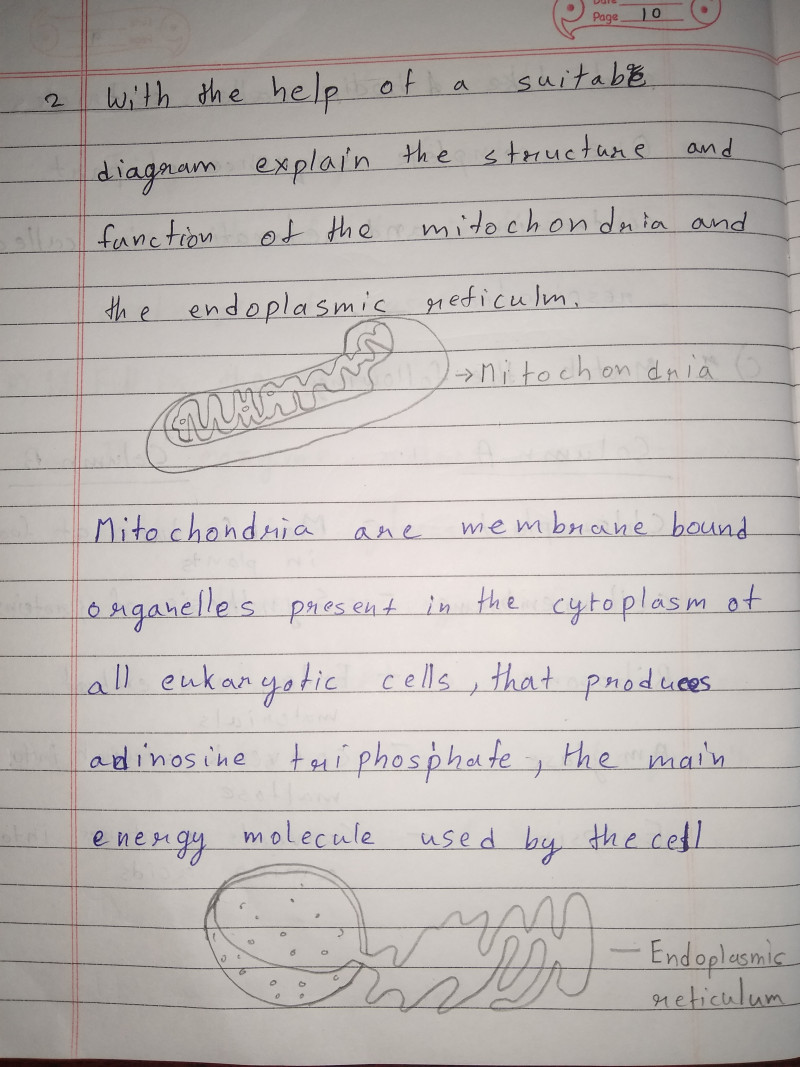 Page 10
2 With the help of a suitable
diagram explain the structure and
function of the mitochondria and
the endoplasmic reticulm.
→Mitochondria
Mitochondria are membrane bound
organelles present in the cytoplasm of
all eukaryotic cells, that produces
adinosine triphosphate, the main
energy molecule used by the cell
— Endoplasmic
reticulum